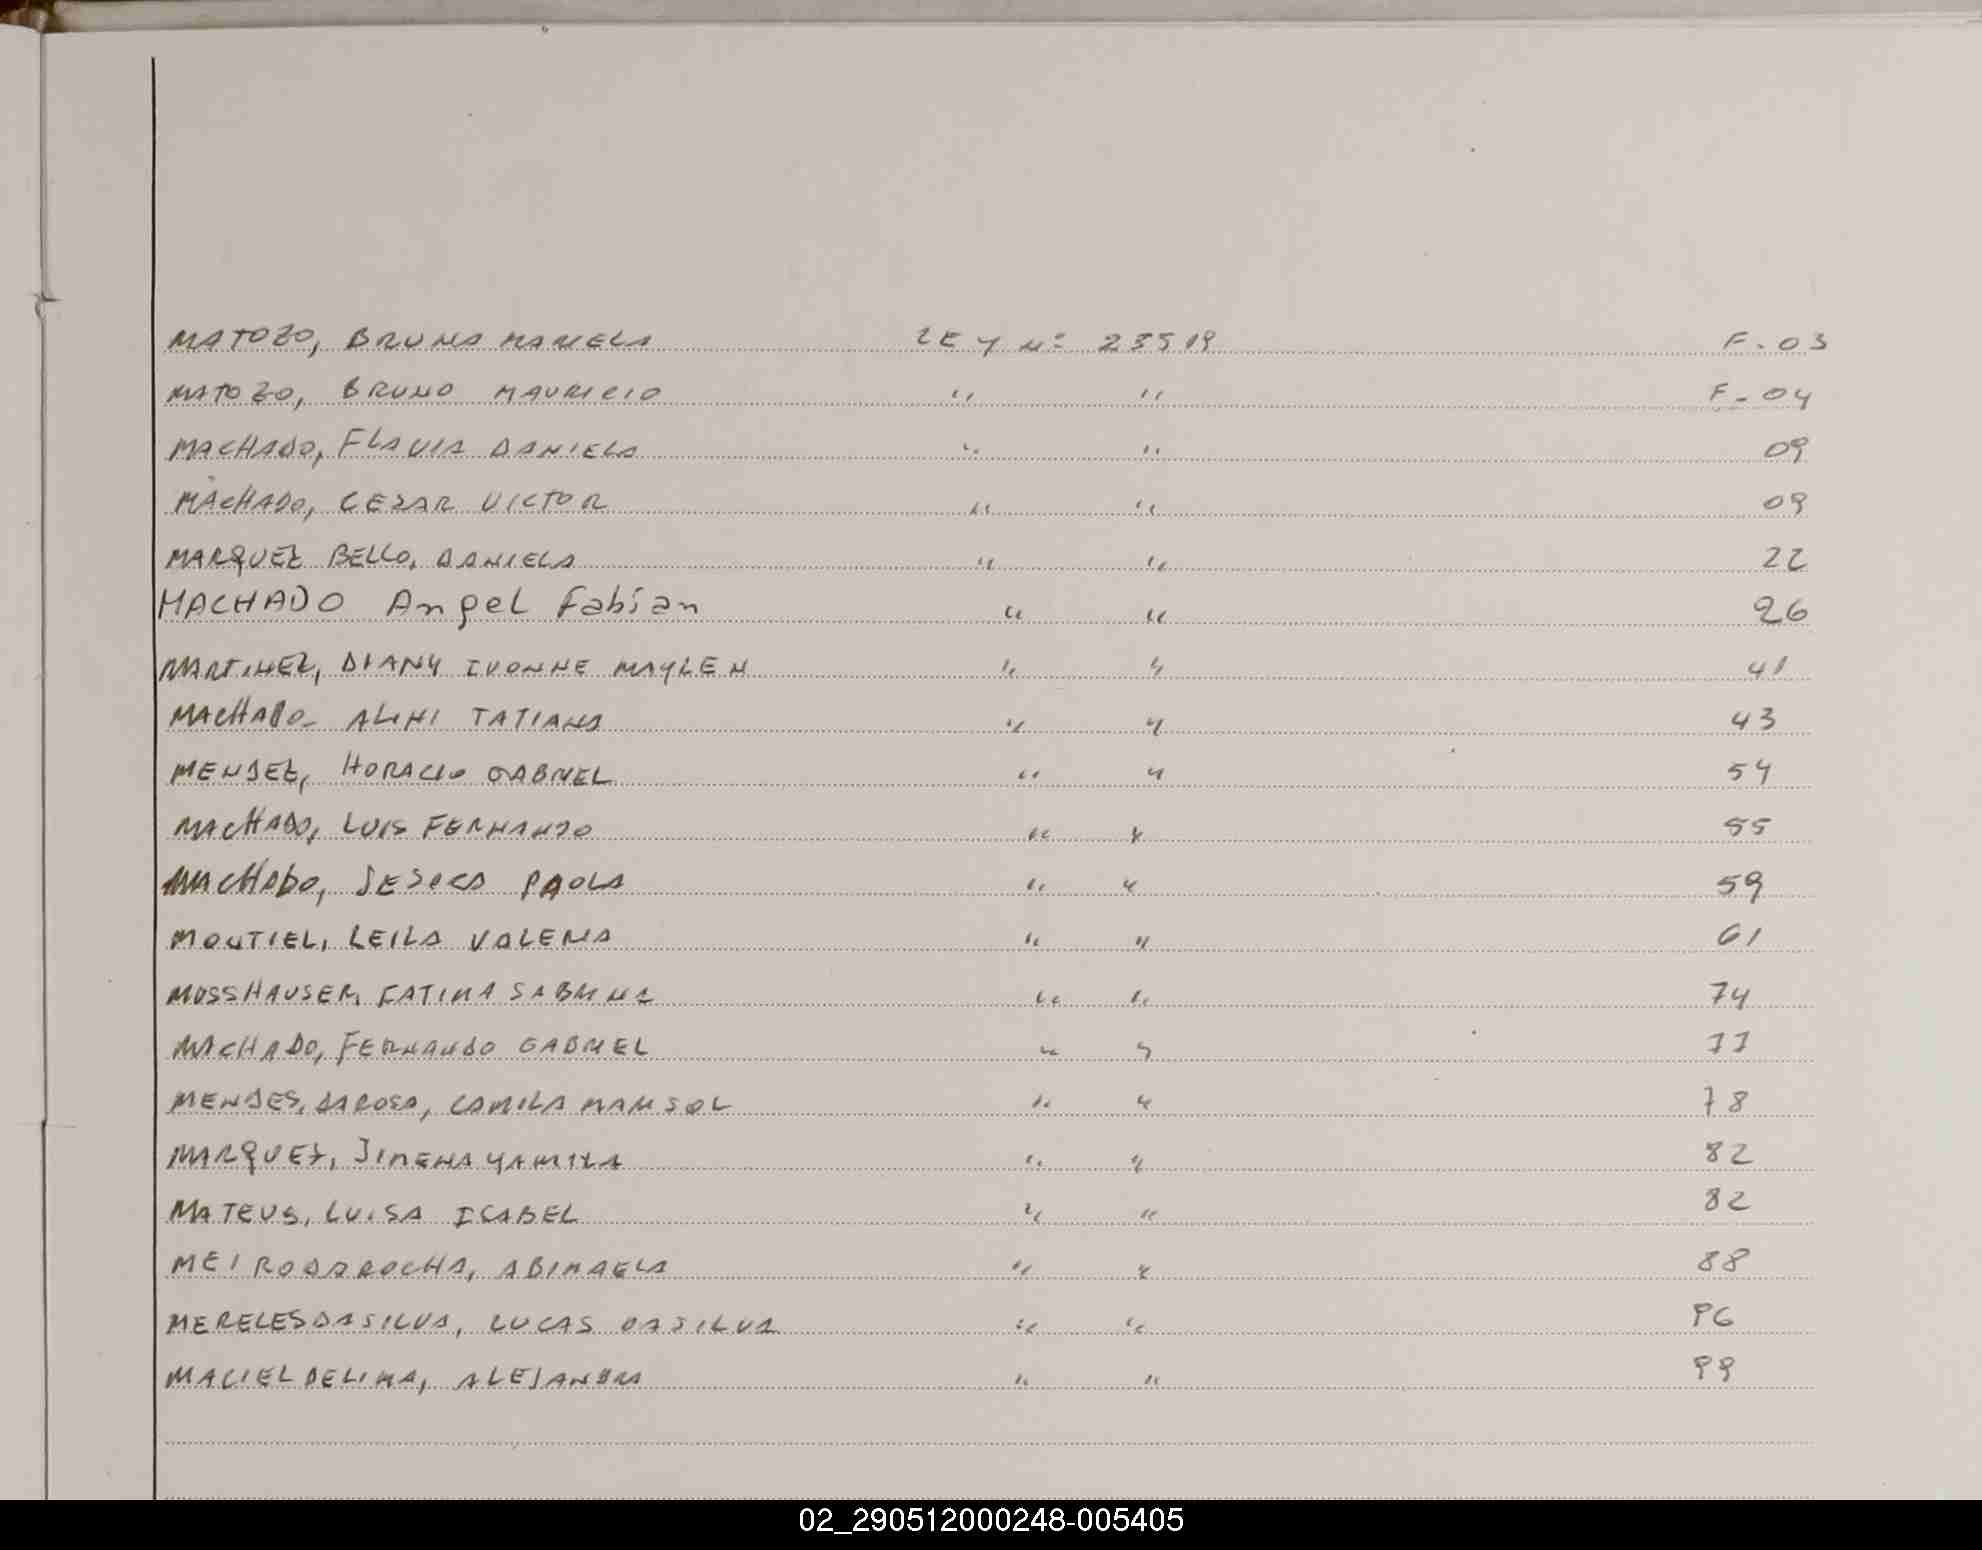 MATOZO, BRUNA MARIELA LEY Nº 23519 F-03
MATOZO, BRUNO MAURICIO " " F-04
MACHADO, FLAVIA DANIELA " " 09
MACHADO, CEZAR VICTOR " " 09
MARQUEZ BELLO, DANIELA " " 22
MACHADO Angel Fabian " " 26
MARTINEZ, DIANY IVONNE MAYLEN " " 41
MACHADO- ALINI TATIANA " " 43
MENDEZ, HORACIO GABRIEL " " 54
MACHADO, LUIS FERNANDO " " 55
MACHADO, JESICA PAOLA " " 59
MONTIEL, LEILA VALERIA " " 61
MOSSHAUSER, FATIMA SABRINA " " 74
MACHADO, FERNANDO GABRIEL " " 77
MENDES, DAROSA, CAMILA MARISOL " " 78
MARQUEZ, JIMENA YAMILA " " 82
MATEUS, LUISA ISABEL " " 82
MEIRODAROCHA, ABIMAELA " " 88
MERELESDASILVA, LUCAS DASILVA " " 96
MACIEL DELIMA, ALEJANDRA " " 99
02_290512000248-005405